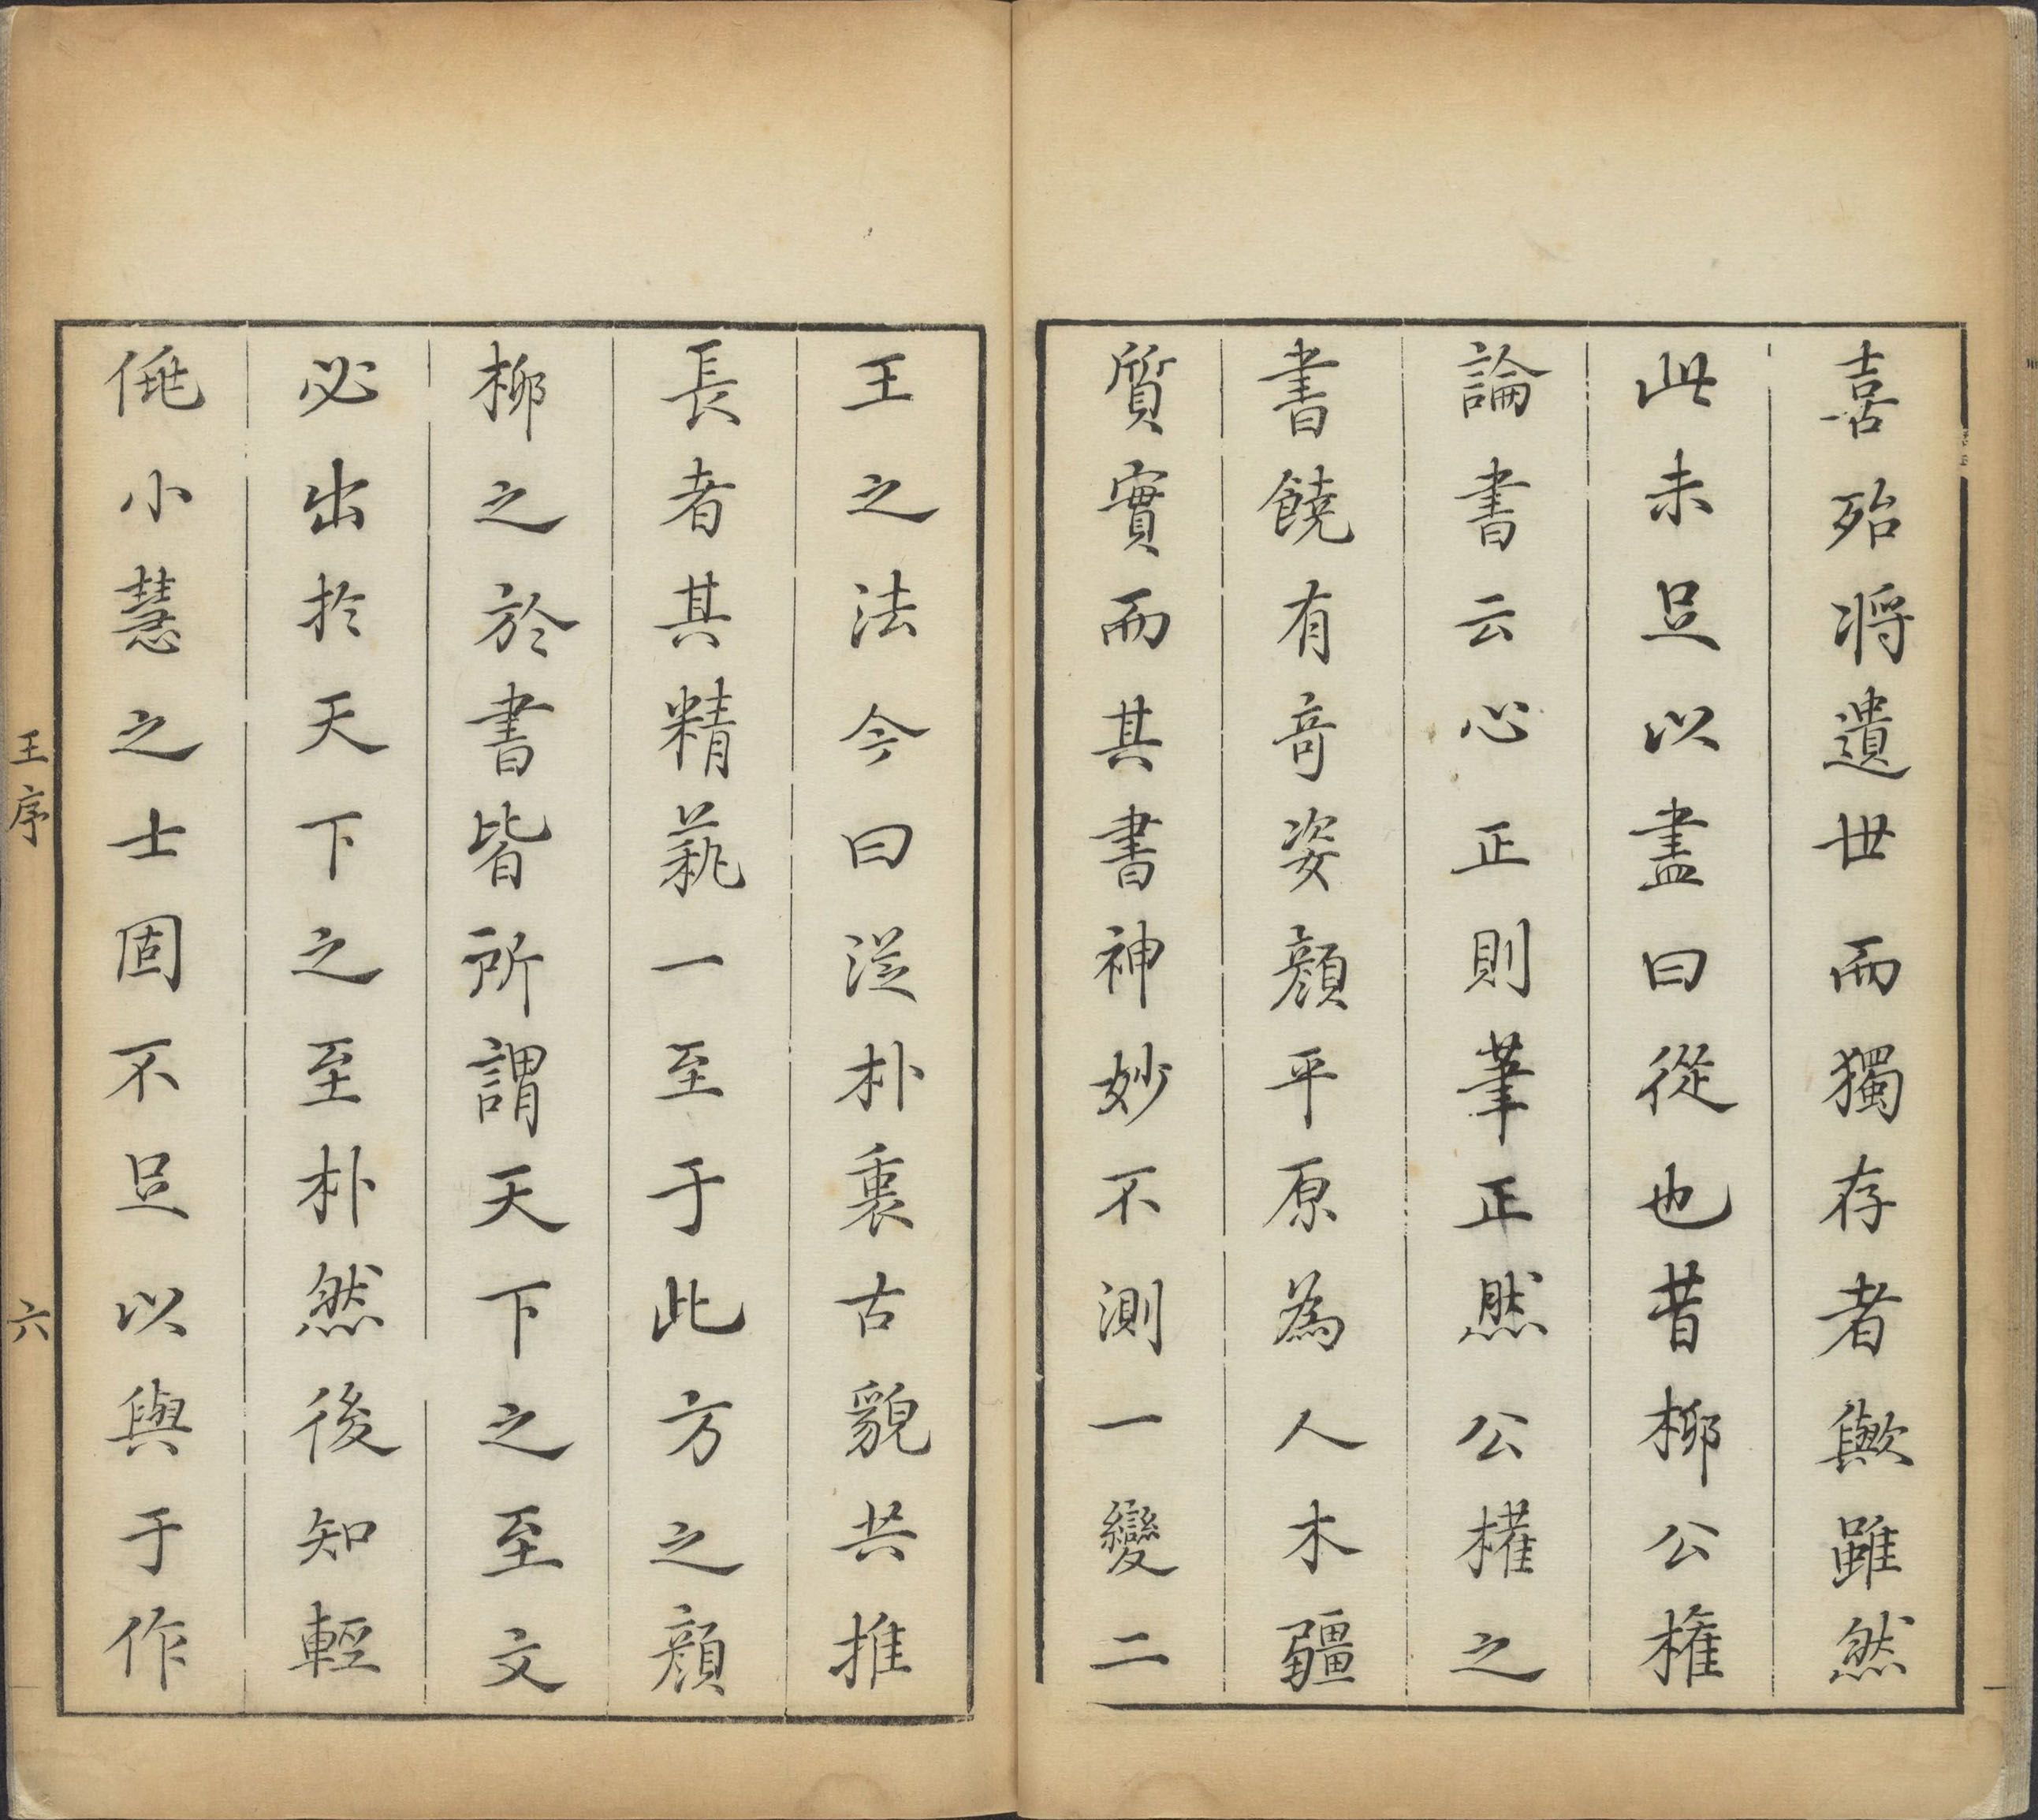 喜殆將遺世而獨存者歟雖然
此未足以盡曰從也昔柳公權
論書云心正則筆正然公權之
書饒有奇姿顏平原為人木彊
質實而其書神妙不測一變二
王之法今曰從朴裏古貌共推
長者其精蓺一至于此方之顏
柳之於書皆所謂天下之至文
必出於天下之至朴然後知輕
俿小慧之士固不足以與于作
王序
六